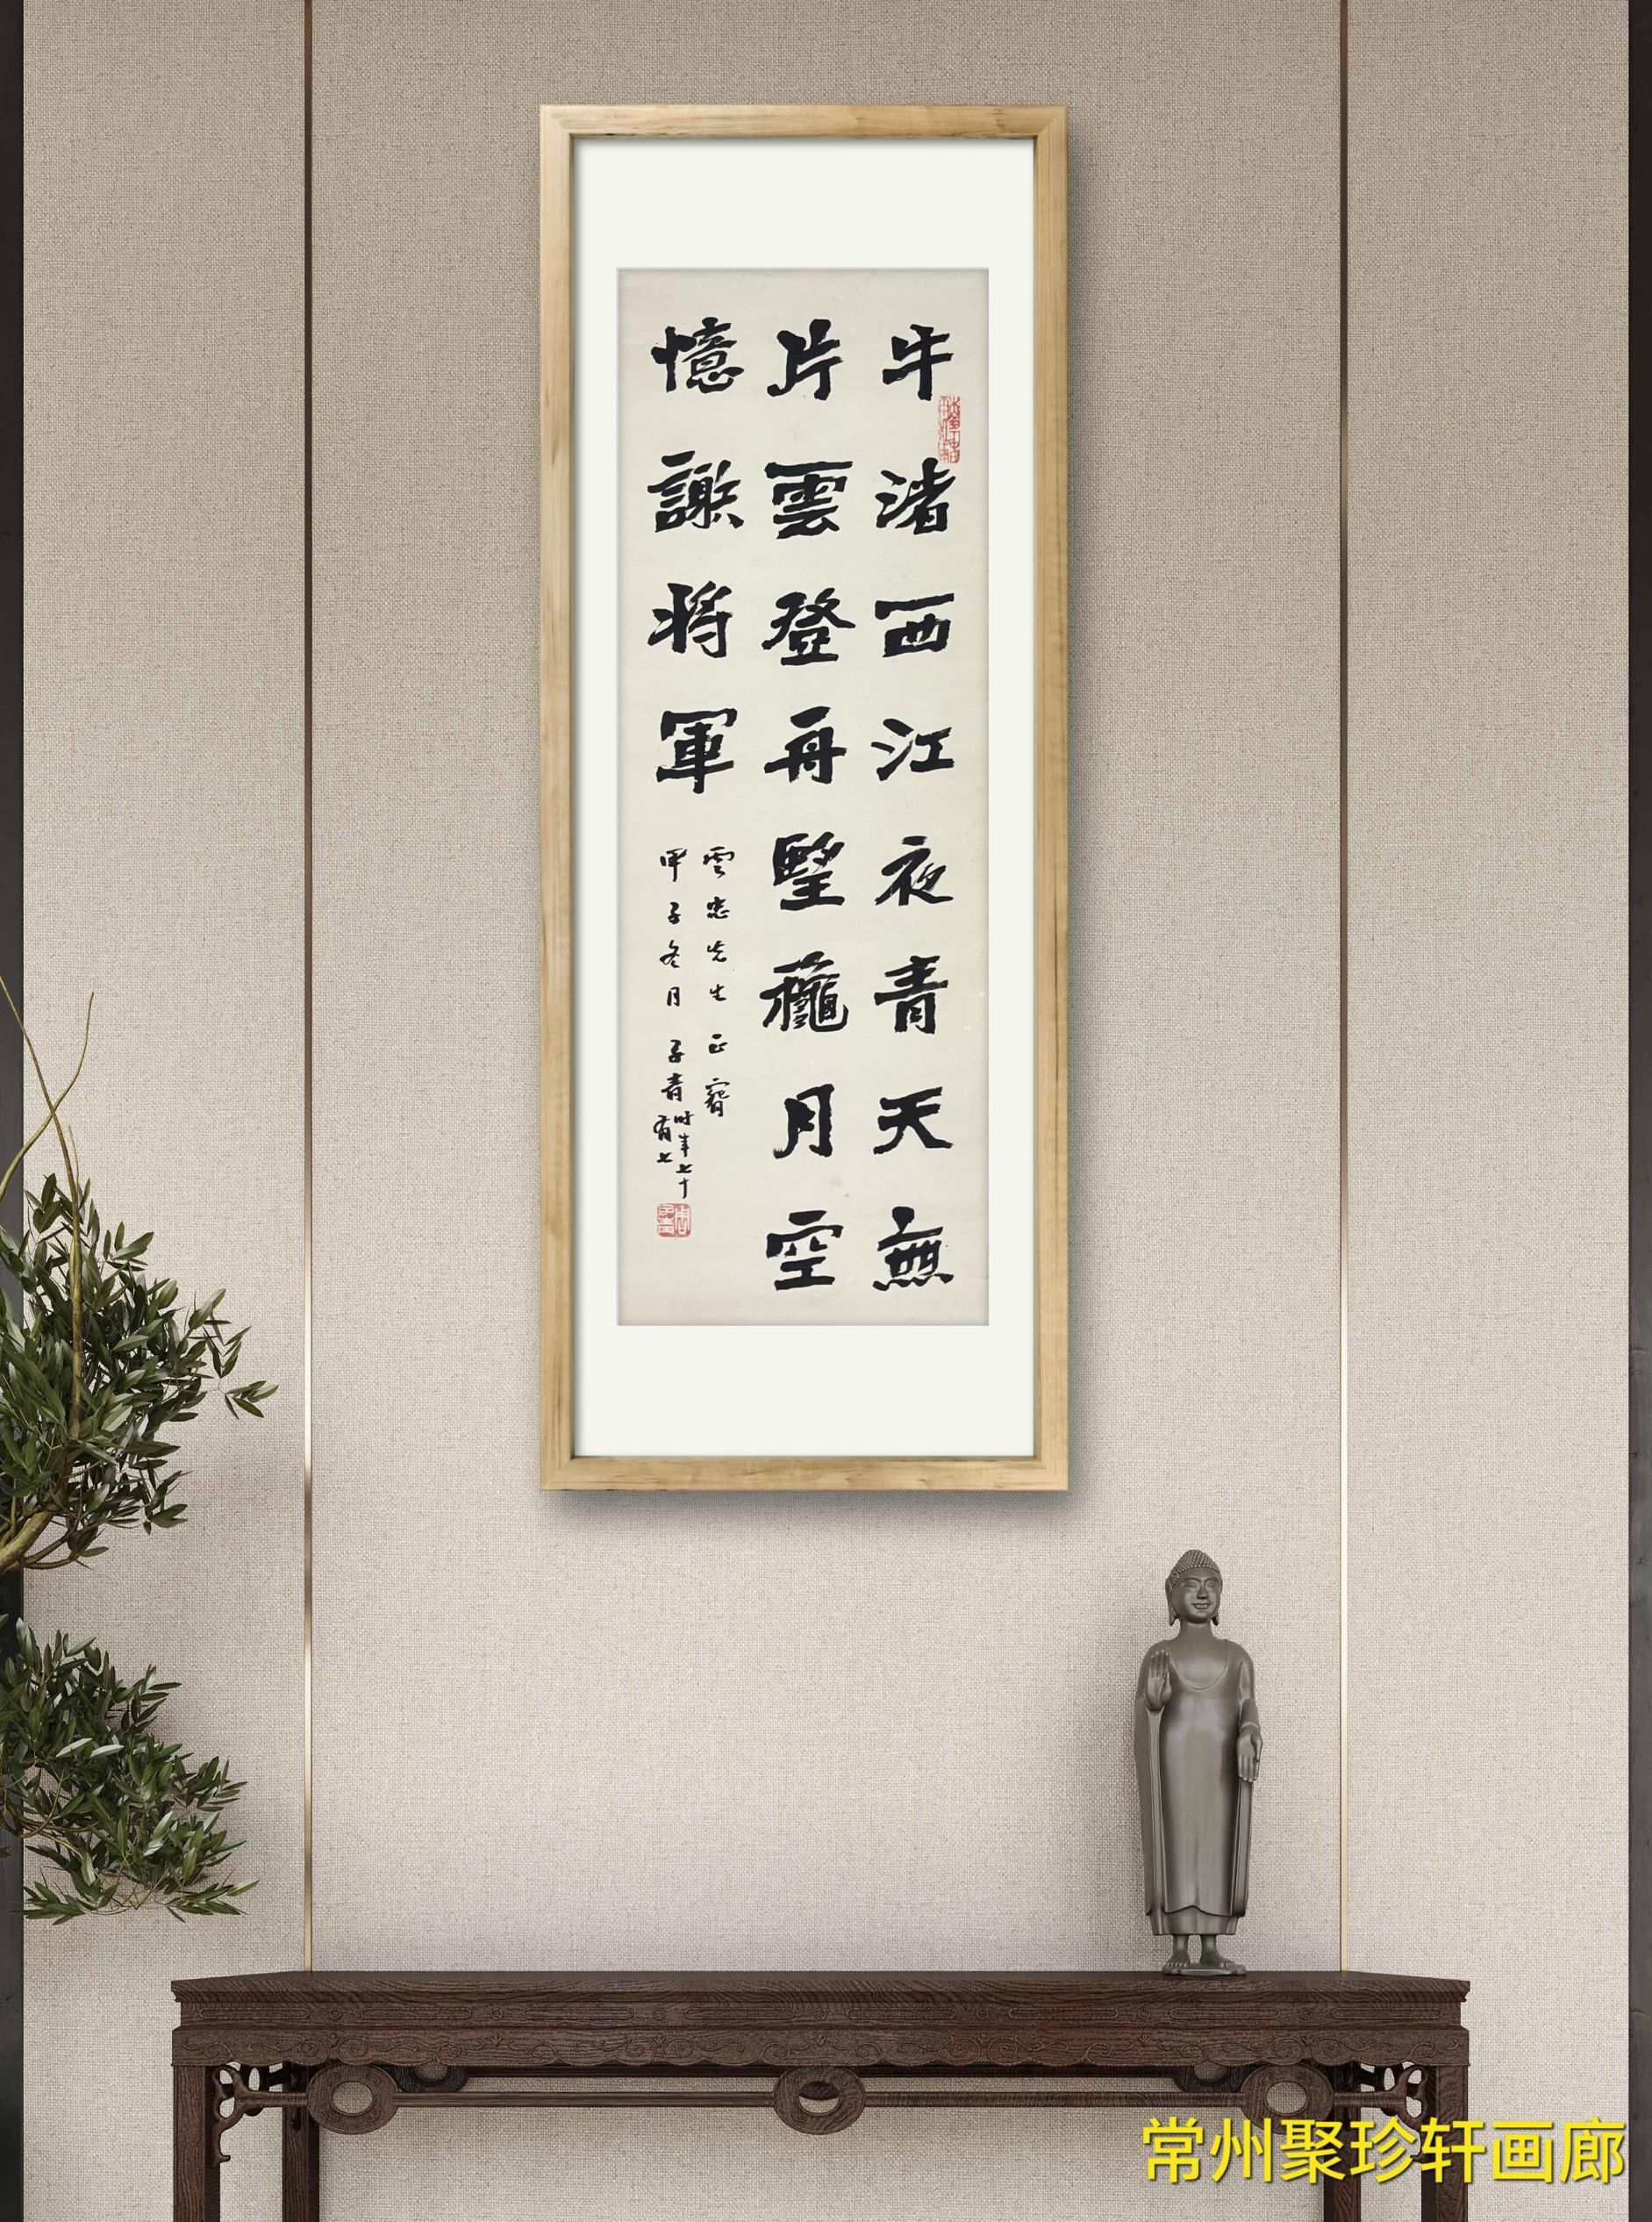 牛渚西江夜青天無
片雲登舟朢龝月空
憶謝将軍
雲忠先生正寳
甲子冬月子青時年七十
有七
常州聚珍轩画廊